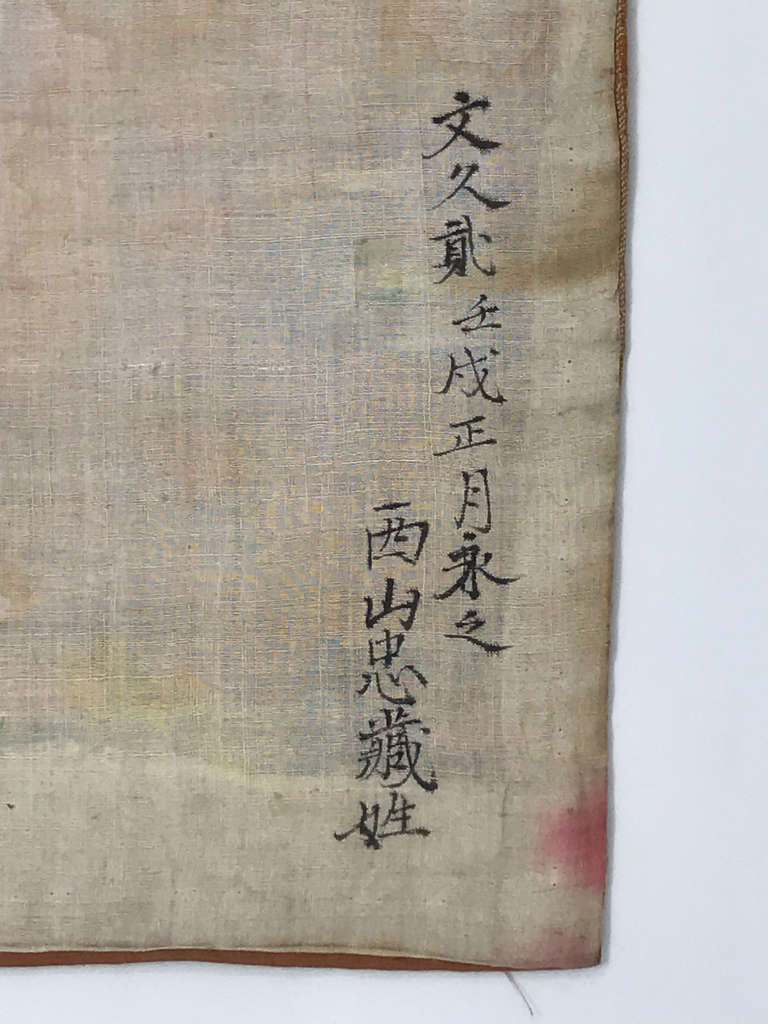 文久貳壬戌正月求之
西山忠藏姓